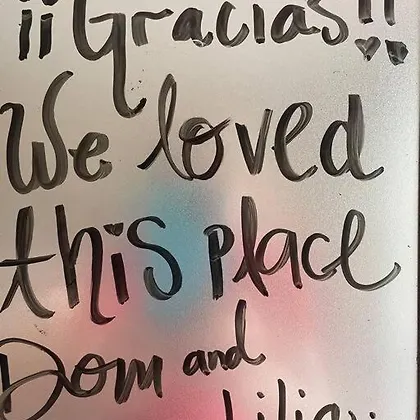 ¡¡Gracias!!
We loved
this place
Dom and